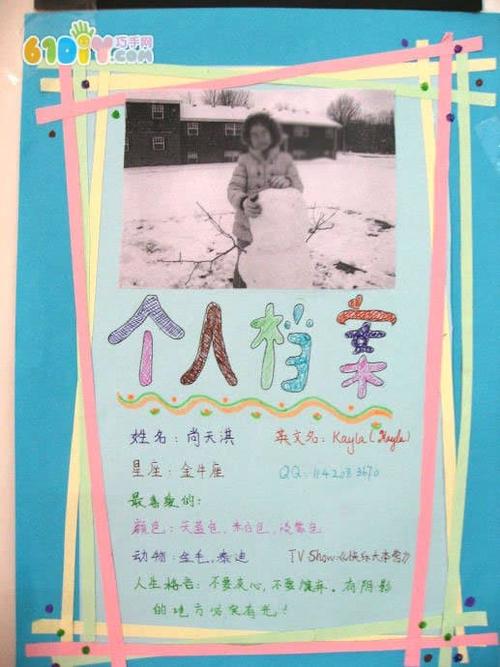 61DIY巧手网
.com
个人档案
姓名：尚天淇 英文名：Kayla（Kayla）
星座：金牛座 QQ：1142083670
最喜爱的：
颜色：天蓝色，米白色，淡紫色
动物：金毛，泰迪 TV Show：《快乐大本营》
人生格言：不要灰心，不要放弃。有阴影
的地方必定有光！